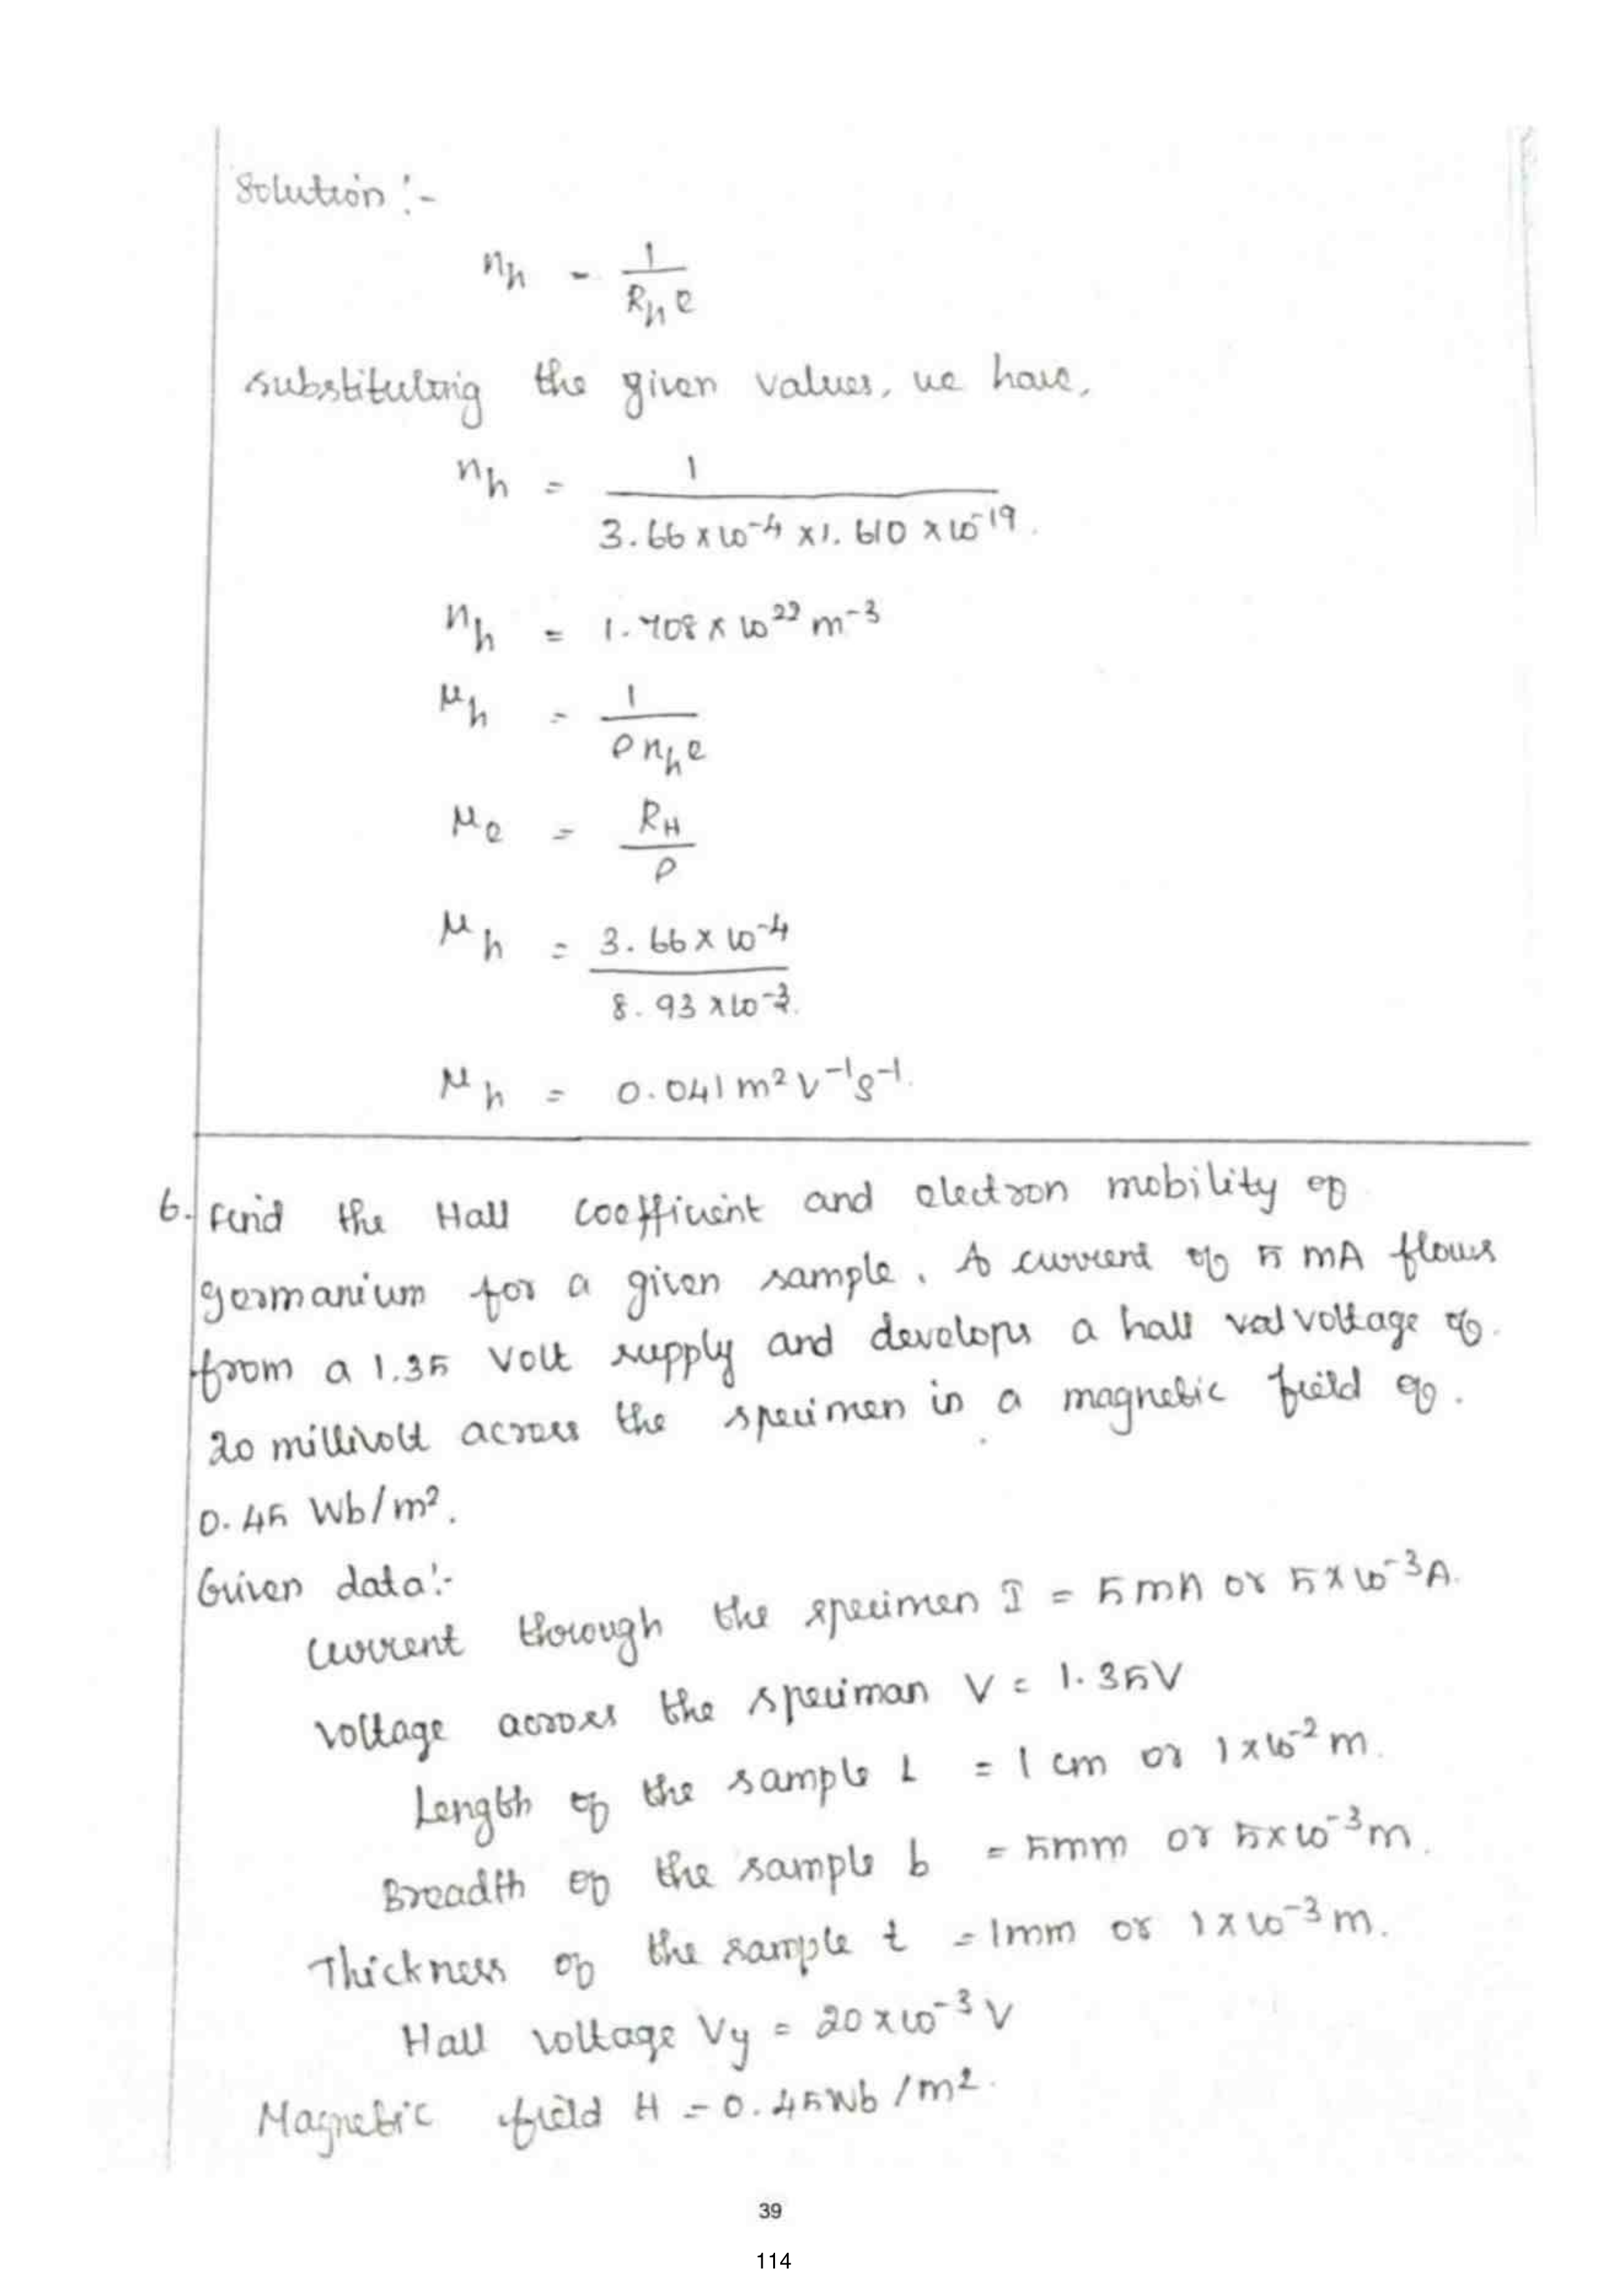 Solution :-
nh = 1 / Rh e
substituting the given values, we have,
nh = 1 / 3.66 x 10^-4 x 1.610 x 10^-19.
nh = 1.708 x 10^22 m^-3
μh = 1 / ρ nh e
μe = RH / ρ
μh = 3.66 x 10^-4 / 8.93 x 10^-3.
μh = 0.041 m² V^-1 s^-1.
6. Find the Hall coefficient and electron mobility of
germanium for a given sample. A current of 5 mA flows
from a 1.35 Volt supply and develops a hall val voltage of.
20 millivolt across the specimen in a magnetic field of.
0.45 Wb/m².
Given data:-
Current through the specimen I = 5mA or 5 x 10^-3 A.
voltage across the speciman V = 1.35V
Length of the sample L = 1 cm or 1 x 10^-2 m.
Breadth of the sample b = 5mm or 5 x 10^-3 m.
Thickness of the sample t = 1mm or 1 x 10^-3 m.
Hall voltage Vy = 20 x 10^-3 V
Magnetic field H = 0.45Wb/m².
39
114